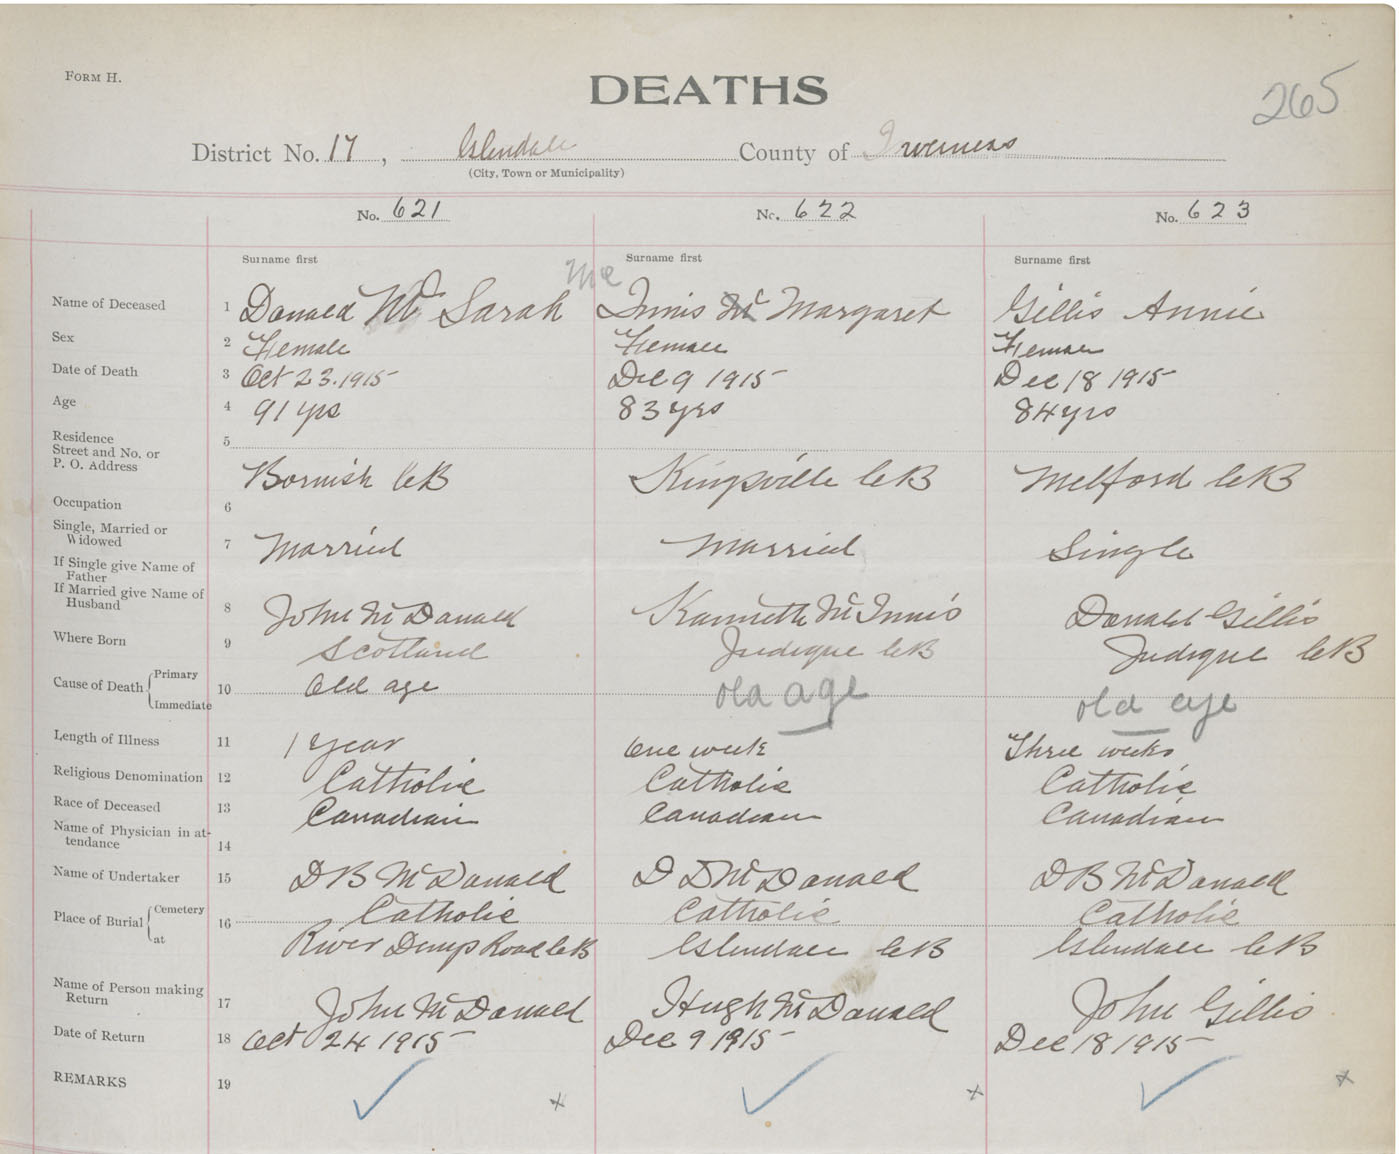 FORM H.
DEATHS
265
District No. 17, Glendale County of Inverness
(City, Town or Municipality)
No. 621 No. 622 No. 623
Surname first Surname first Surname first
Mc
Name of Deceased 1 Donald Mc Sarah Innis Mc Margaret Gillis Annie
Sex 2 Female Female Female
Date of Death 3 Oct 23. 1915 Dec 9 1915 Dec 18 1915
Age 4 91 yrs 83 yrs 84 yrs
Residence
Street and No. or
P. O. Address 5 Bornish CB Kingsville CB Melford CB
Occupation 6
Single, Married or
Widowed 7 Married Married Single
If Single give Name of
Father
If Married give Name of
Husband 8 John McDonald Kanneth McInnis Donald Gillis
Where Born 9 Scotland Judique CB Judique CB
Cause of Death { Primary
Immediate 10 Old age old age old age
Length of Illness 11 1 year One week Three weeks
Religious Denomination 12 Catholic Catholic Catholic
Race of Deceased 13 Canadian Canadian Canadian
Name of Physician in at-
tendance 14
Name of Undertaker 15 D B McDonald D D McDonald D B McDonald
Place of Burial { Cemetery 16 Catholic Catholic Catholic
at River Denys Road CB Glendale CB Glendale CB
Name of Person making
Return 17 John McDonald Hugh McDonald John Gillis
Date of Return 18 Oct 24 1915 Dec 9 1915 Dec 18 1915
REMARKS 19